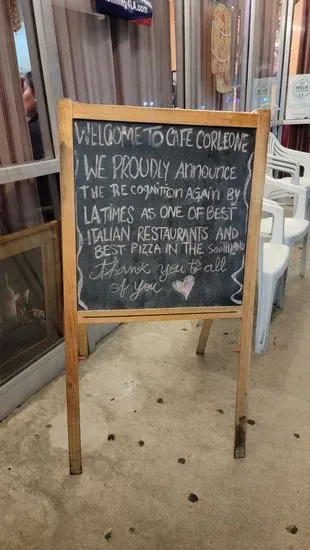 WELCOME TO CAFE CORLEONE
WE PROUDLY ANNOUNCE
THE RECOGNITION AGAIN BY
LA TIMES AS ONE OF BEST
ITALIAN RESTAURANTS AND
BEST PIZZA IN THE SOUTHLAND
Thank you to all
of you